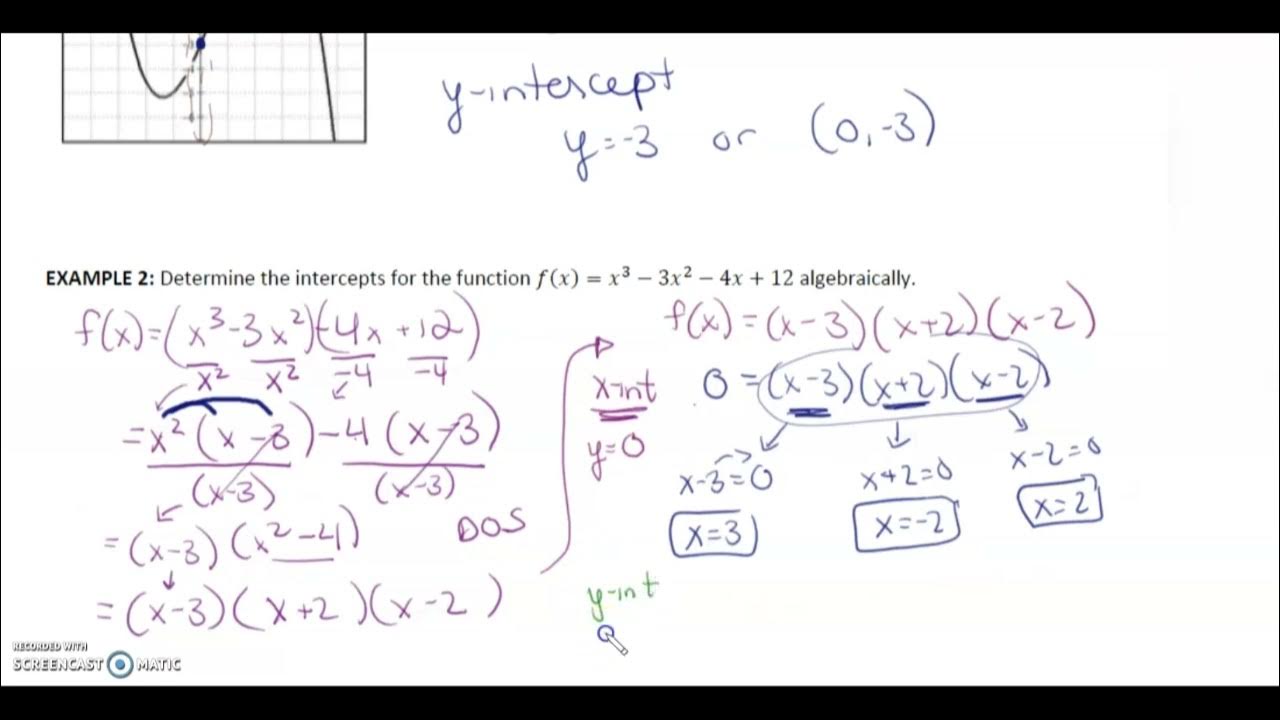 y-intercept
y=-3 or (0,-3)
EXAMPLE 2: Determine the intercepts for the function f(x) = x³ − 3x² − 4x + 12 algebraically.
f(x)=(x³-3x²)(-4x+12)
x² x² -4 -4
=x²(x-3)-4(x-3)
(x-3) (x-3)
=(x-3)(x²-4) DOS
=(x-3)(x+2)(x-2)
f(x)=(x-3)(x+2)(x-2)
x-int
y=0
0=(x-3)(x+2)(x-2)
x-3=0 x+2=0 x-2=0
x=3 x=-2 x=2
y-int
RECORDED WITH
SCREENCAST MATIC